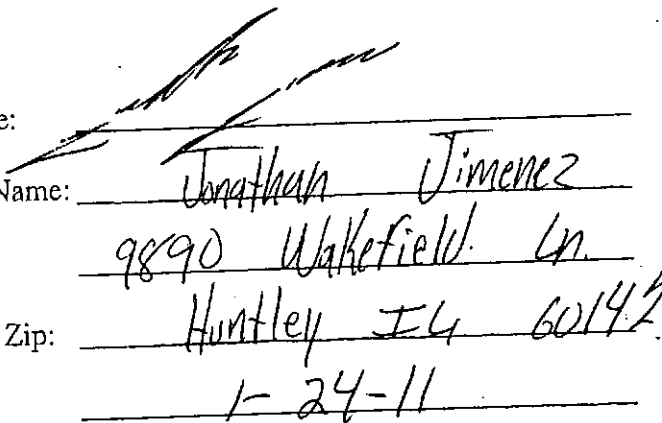 e:
Name: Jonathan Jimenez
9890 Wakefield. Ln.
Zip: Huntley IL 60142
1-24-11